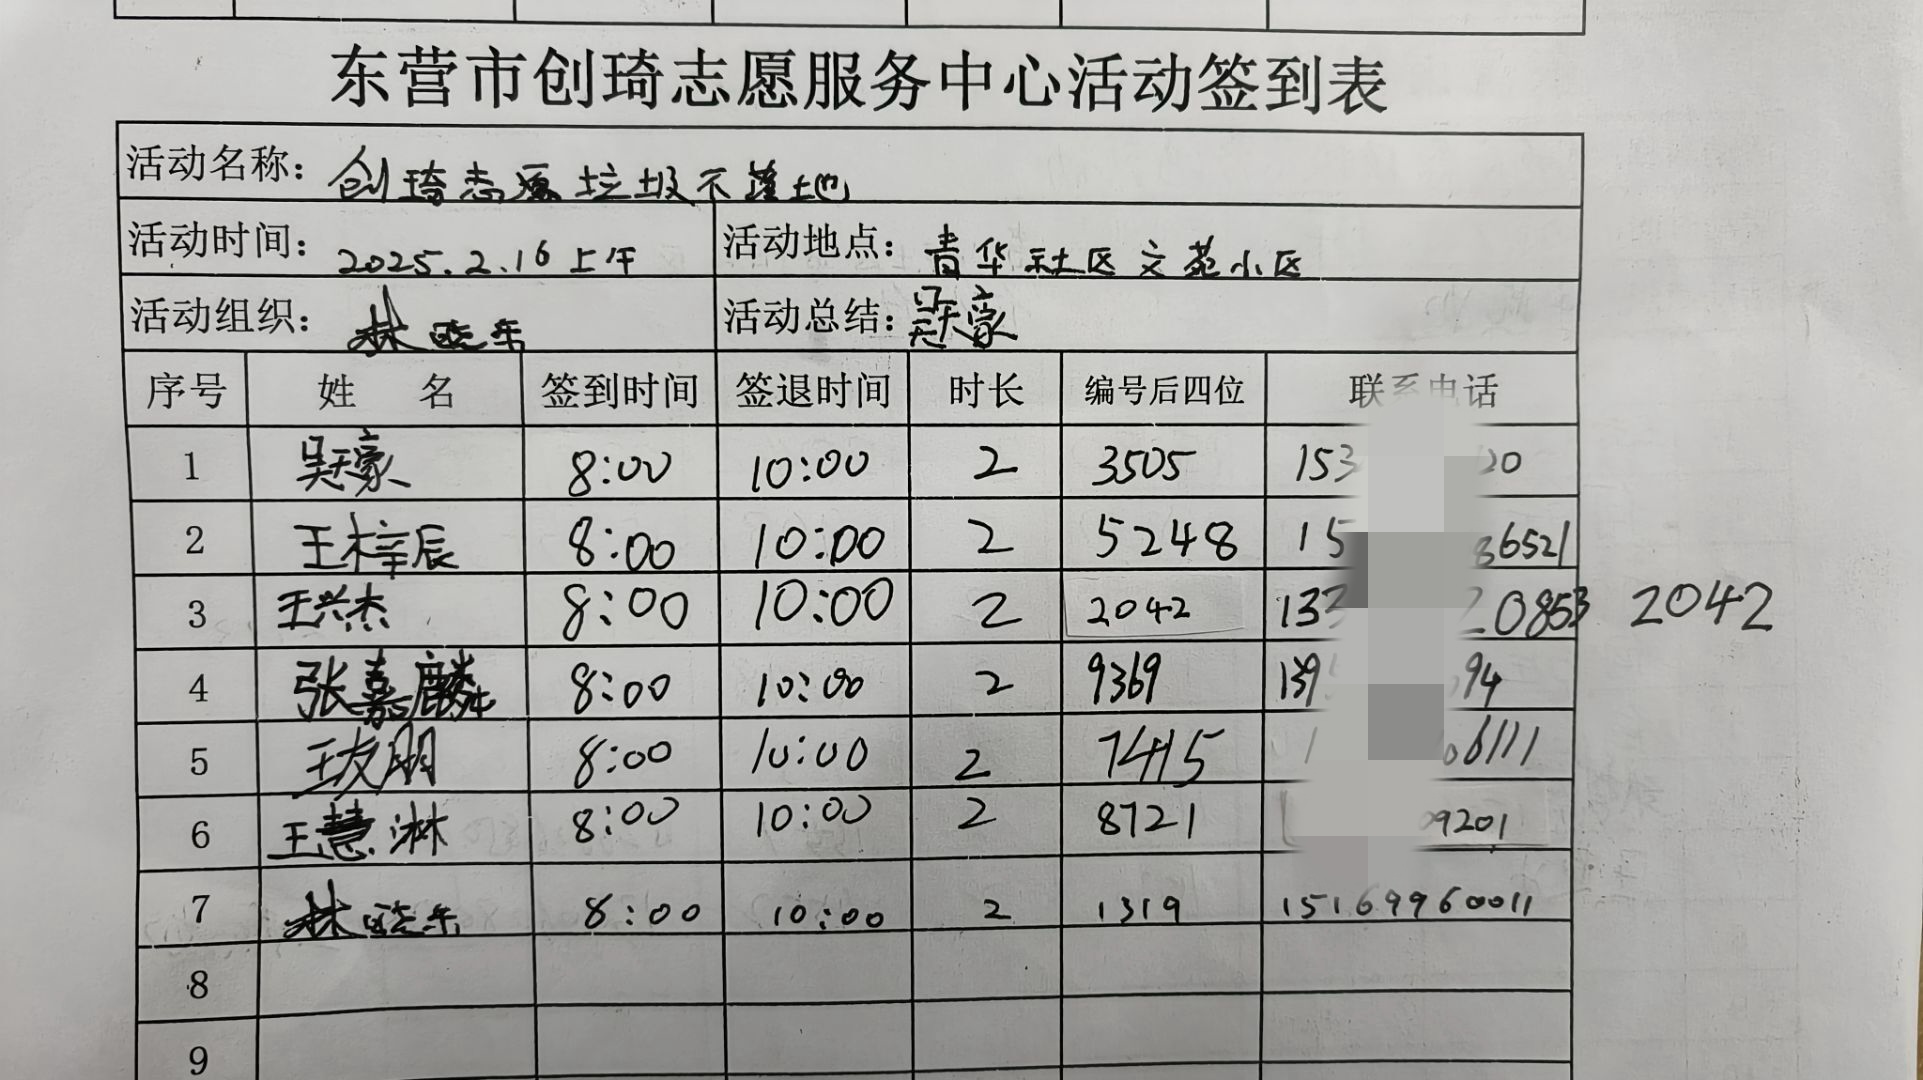 东营市创琦志愿服务中心活动签到表
活动名称：创琦志愿垃圾不落地
活动时间：2025.2.16上午 活动地点：青华社区文苑小区
活动组织：林晓东 活动总结：吴天豪
序号 姓 名 签到时间 签退时间 时长 编号后四位 联系电话
1 吴天豪 8:00 10:00 2 3505 153 20
2 王梓辰 8:00 10:00 2 5248 15 86521
3 王兴杰 8:00 10:00 2 2042 133 20853 2042
4 张嘉麟 8:00 10:00 2 9369 139 94
5 王友朋 8:00 10:00 2 7415 1 06111
6 王慧淋 8:00 10:00 2 8721 09201
7 林晓东 8:00 10:00 2 1319 15169960011
8
9